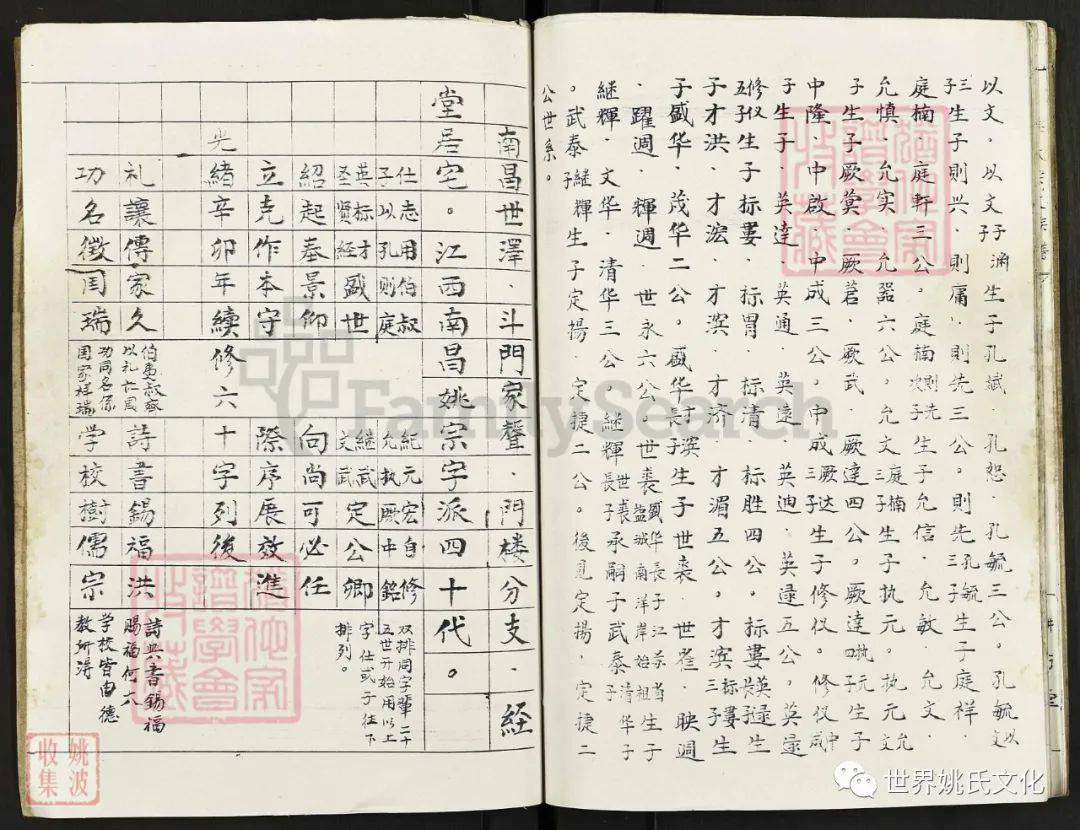 以文。以文子渊生子孔斌．孔恕．孔毓三公。孔毓以文
三子生子则兴．则庸．则先三公。则先孔毓三子生子庭祥．
庭楠．庭軒三公。庭楠则先次子生子允信．允敏．允文．
允慎．允实．允器六公。允文庭楠三子生子执元。执元允文
子生子厥蓂．厥茗．厥武．厥達四公。厥達执元子生子
中隆．中啟．中成三公。中成厥达三子生子修仪。修仪中成
子生子．英達．英通．英遠．英迪．英逯五公。英逯
修仪五子生子标蒌．标胃．标清．标胜四公。标蒌英逯長子生
子才洪．才浤．才淏．才济．才湄五公。才淏标蒌三子生
子盛华．茂华二公。盛华才淏長子生子世裘．世崔．映週
．躍週．輝週．世永六公。世裘盛华長子江苏省盐城南洋岸始祖生子
継輝．文华．清华三公。継輝世裘長子承嗣子武泰清华子
。武泰継輝子生子定揚．定捷二公。後見定揚．定捷二
公世系。
南昌世澤．斗門家聲．門楼分支．経
堂居宅。江西南昌姚宗字派四十代。
仕志用伯叔 紀元宏自修
子以孔则庭 允执厥中銘
英标才盛世 継武定公卿
圣贤経 文武
双排同字輩二十
五世开始用以上
字仕或子在下
排列。
紹起奉景仰 向尚可必任
立克作本守 際序展效進
光緒辛卯年續修六十字列後
礼讓傳家久 詩書錫福洪
伯夷叔齊
以礼
詩與書錫福
賜福何人
功名徵国瑞 学校樹儒宗
功同名係
国家祥瑞
学校皆由德
教所得
姚波
收集
世界姚氏文化
FamilySearch